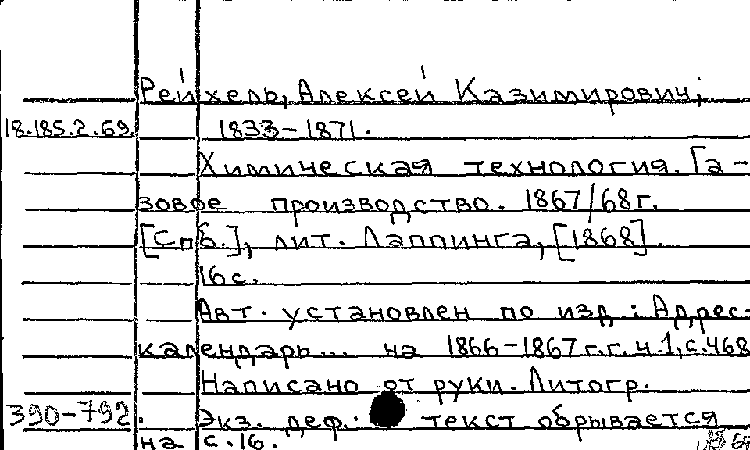 Рейхель, Алексей Казимирович,
18.185.2.69. 1833-1871.
Химическая технология. Га-
зовое производство. 1867/68 г.
[Спб.], лит. Лаппинга, [1868].
16 с.
Авт. установлен по изд.: Адрес-
календарь... на 1866-1867 г.г. ч.1, с.468
Написано от руки. Литогр.
390-792. Экз. деф.: текст обрывается
на с.16.